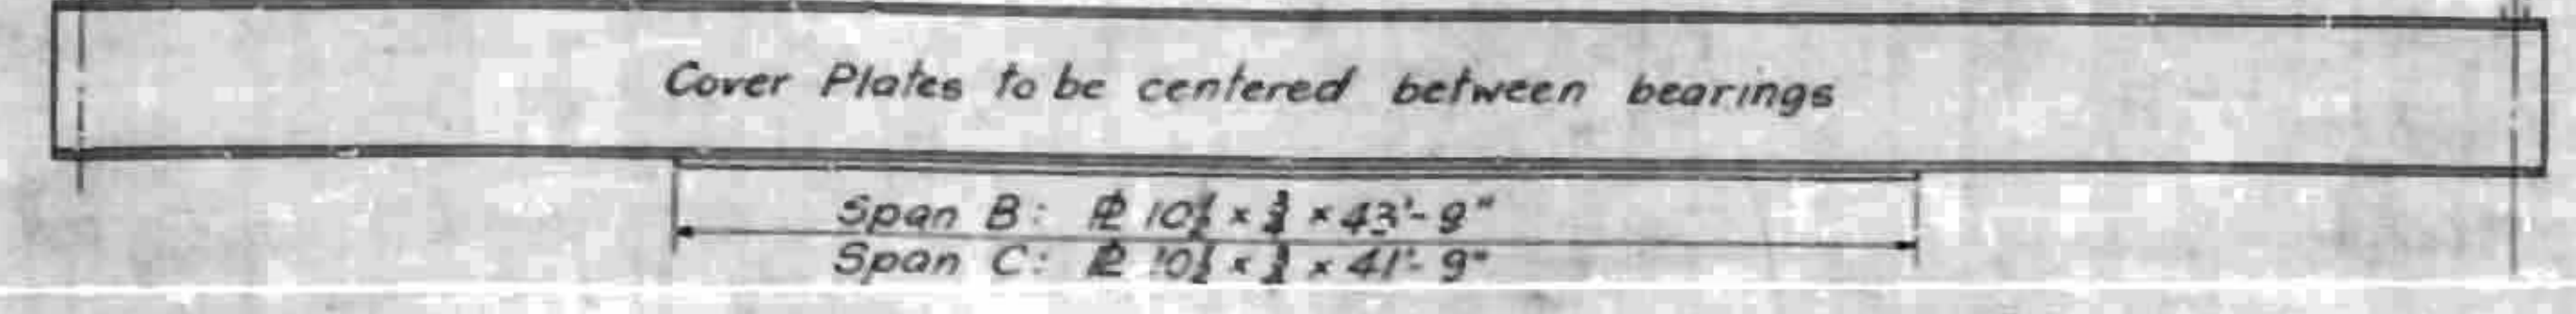 Cover Plates to be centered between bearings
Span B: ℄ 10½ × ¾ × 43'-9"
Span C: ℄ 10½ × ¾ × 41'-9"